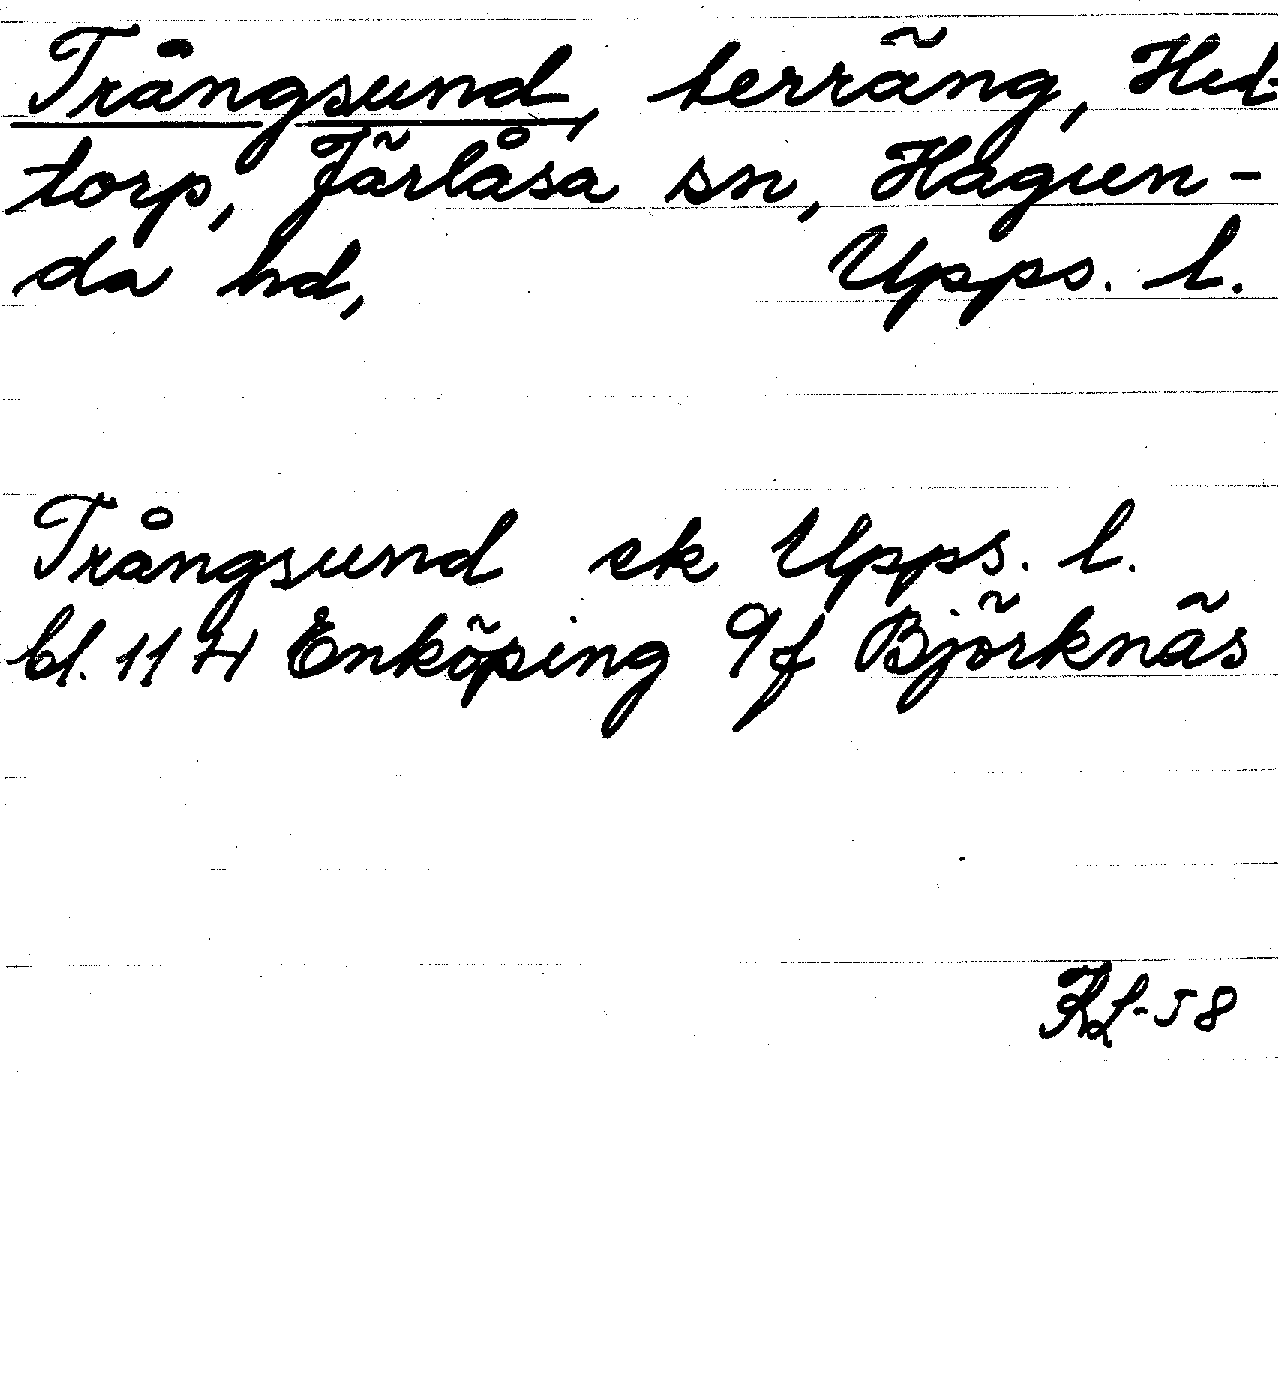 Trångsund, terräng, Hed-
torp, Järlåsa sn, Hagun-
da hd, Upps. l.
Trångsund ek Upps. l.
bl. 11 H Enköping 9f Björknäs
KL-58